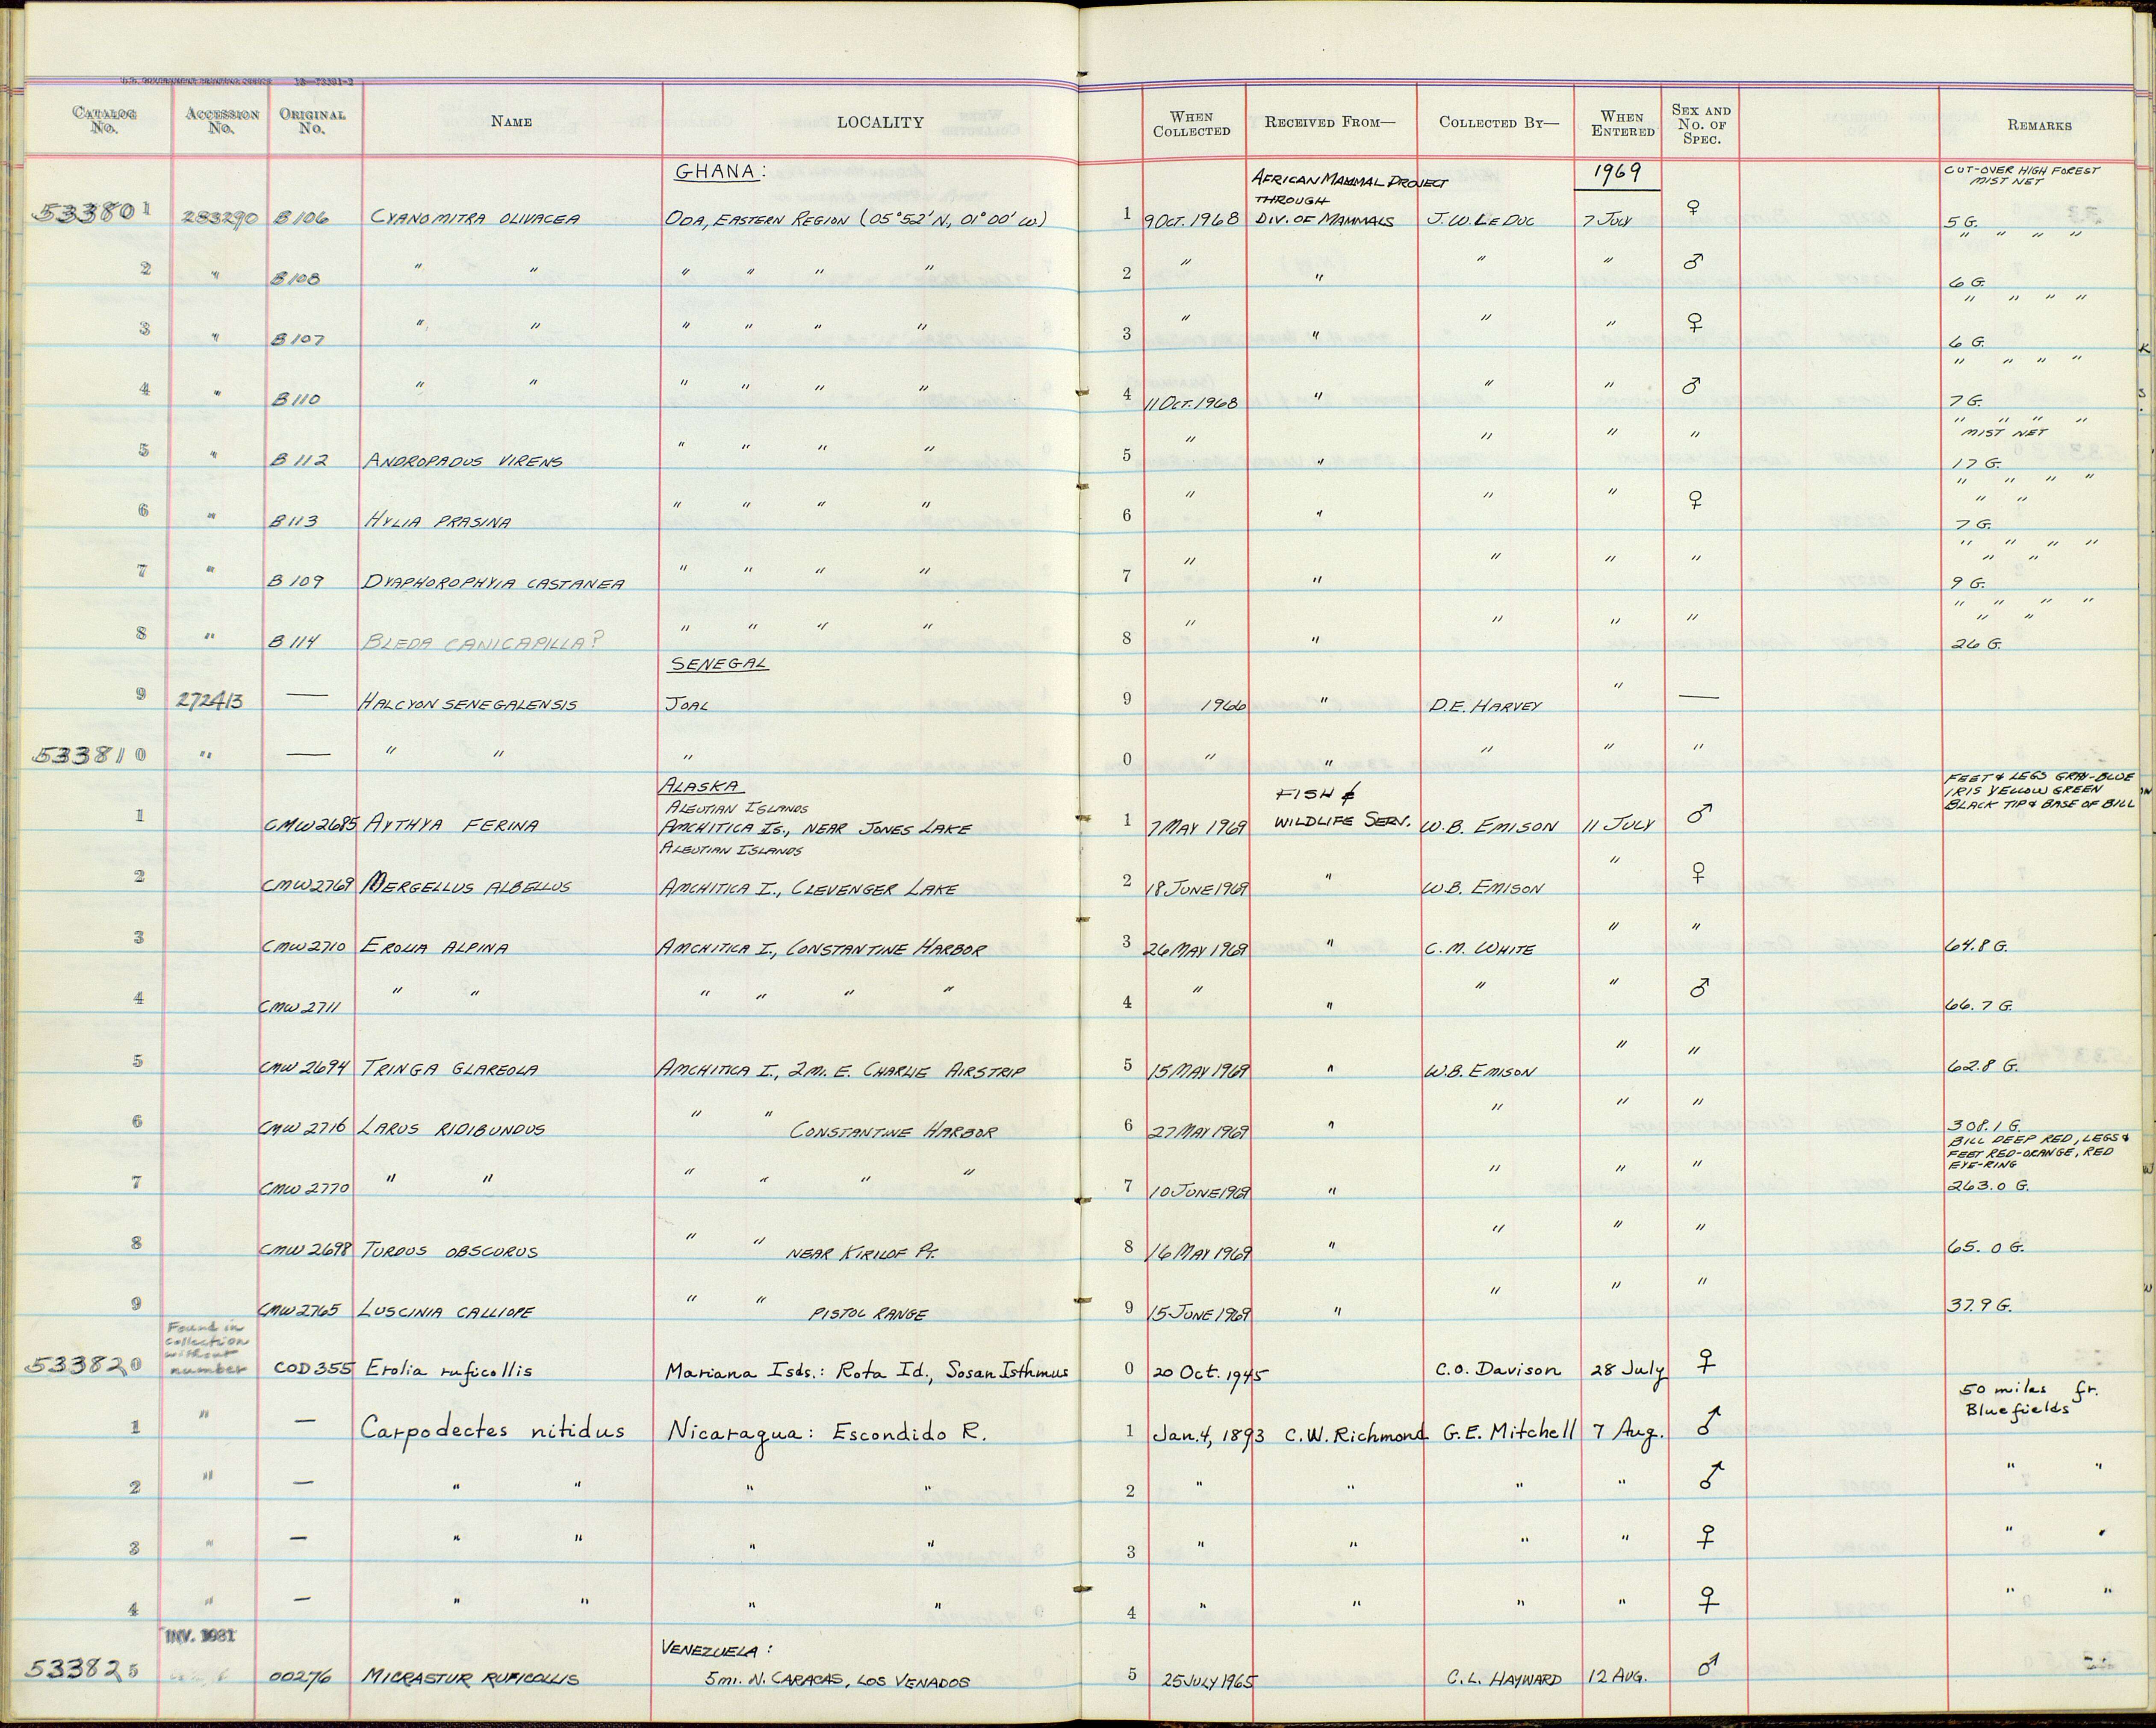 U.S. GOVERNMENT PRINTING OFFICE 16—73391-2
CATALOG No. ACCESSION No. ORIGINAL No. NAME LOCALITY WHEN COLLECTED RECEIVED FROM— COLLECTED BY— WHEN ENTERED SEX AND No. OF SPEC. REMARKS
GHANA: AFRICAN MAMMAL PROJECT THROUGH 1969 CUT-OVER HIGH FOREST MIST NET
533801 283290 B106 CYANOMITRA OLIVACEA ODA, EASTERN REGION (05°52' N, 01°00' W.) 1 9 OCT. 1968 DIV. OF MAMMALS J.W. LE DUC 7 JULY ♀ 5 G.
2 " B108 " " " " " " 2 " " " " ♂ " " " " 6 G.
3 " B107 " " " " " " 3 " " " " ♀ " " " " 6 G.
4 " B110 " " " " " " 4 11 OCT. 1968 " " " ♂ " " " " 7 G.
5 " B112 ANDROPADUS VIRENS " " " " 5 " " " " " " " " " MIST NET 17 G.
6 " B113 HYLIA PRASINA " " " " 6 " " " " ♀ " " " " " " 7 G.
7 " B109 DYAPHOROPHYIA CASTANEA " " " " 7 " " " " " " " " " " " 9 G.
8 " B114 BLEDA CANICAPILLA? " " " " 8 " " " " " " " " " " " 26 G.
SENEGAL
9 272413 — HALCYON SENEGALENSIS JOAL 9 1966 " D.E. HARVEY " —
533810 " — " " " 0 " " " " "
ALASKA
ALEUTIAN ISLANDS FISH & FEET & LEGS GRAY-BLUE IRIS YELLOW GREEN BLACK TIP & BASE OF BILL
1 CMW2685 AYTHYA FERINA AMCHITICA IS., NEAR JONES LAKE 1 7 MAY 1969 WILDLIFE SERV. W.B. EMISON 11 JULY ♂
ALEUTIAN ISLANDS
2 CMW2769 MERGELLUS ALBELLUS AMCHITICA I., CLEVENGER LAKE 2 18 JUNE 1969 " W.B. EMISON " ♀
3 CMW2710 EROLIA ALPINA AMCHITICA I., CONSTANTINE HARBOR 3 26 MAY 1969 " C.M. WHITE " " 64.8 G.
4 CMW2711 " " " " " " 4 " " " " ♂ 66.7 G.
5 CMW2694 TRINGA GLAREOLA AMCHITICA I., 2 MI. E. CHARLIE AIRSTRIP 5 15 MAY 1969 " W.B. EMISON " " 62.8 G.
6 CMW2716 LARUS RIDIBUNDUS " " CONSTANTINE HARBOR 6 27 MAY 1969 " " " " 308.1 G.
BILL DEEP RED, LEGS & FEET RED-ORANGE, RED EYE-RING
7 CMW2770 " " " " " " 7 10 JUNE 1969 " " " " 263.0 G.
8 CMW2698 TURDUS OBSCURUS " " NEAR KIRILOF PT. 8 16 MAY 1969 " " " " 65.0 G.
9 CMW2765 LUSCINIA CALLIOPE " " PISTOL RANGE 9 15 JUNE 1969 " " " " 37.9 G.
Found in collection without
533820 number COD355 Erolia ruficollis Mariana Isds.: Rota Id., Sosan Isthmus 0 20 Oct. 1945 C.O. Davison 28 July ♀
50 miles fr. Bluefields
1 " — Carpodectes nitidus Nicaragua: Escondido R. 1 Jan. 4, 1893 C.W. Richmond G.E. Mitchell 7 Aug. ♂
2 " — " " " " 2 " " " " ♂ " "
3 " — " " " " 3 " " " " ♀ " "
4 " — " " " " 4 " " " " ♀ " "
INV. 1981 VENEZUELA:
533825 00276 MICRASTUR RUFICOLLIS 5 MI. N. CARACAS, LOS VENADOS 5 25 JULY 1965 C.L. HAYWARD 12 AUG. ♂